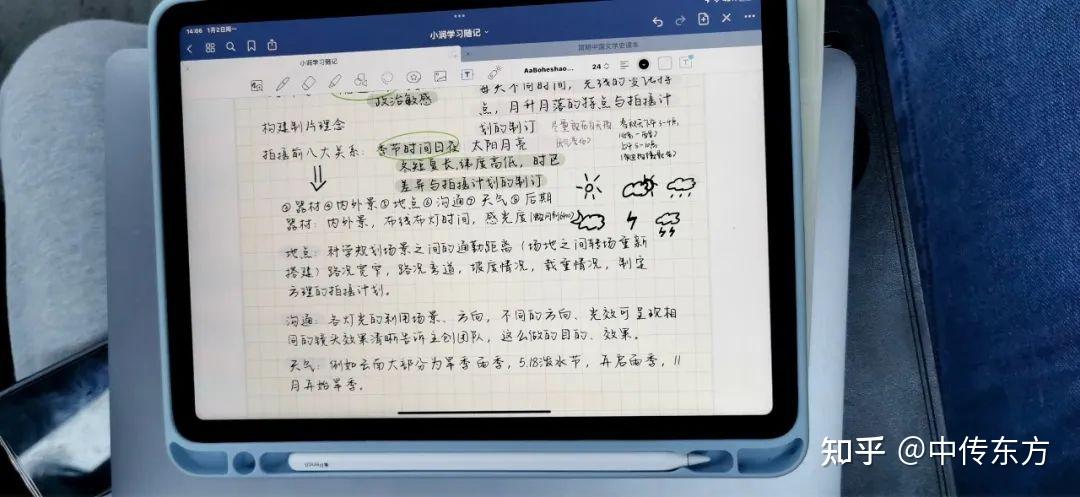 14:06 1月2日周一
小润学习随记
小润学习随记
简明中国文学史读本
AaBoheshao... 24
政治敏感
每天不同时间，光线的变化特
点，月升月落的特点与拍摄计
划的制订
构建制片理念
拍摄前八大关系：季节时间日夜 太阳月亮
冬短夏长，纬度高低，时区
差异与拍摄计划的制订
③器材④内外景⑤地点⑥沟通⑦天气⑧后期
器材：内外景，布线布灯时间，感光度
地点：科学规划场景之间的通勤距离（场地之间转场重新
搭建）路况宽窄，路况弯道，坡度情况，载重情况，制定
方理的拍摄计划。
沟通：各灯光的利用场景、方向，不同的方向、光效可呈现相
同的镜头效果清晰告诉主创团队，这么做的目的、效果。
天气：例如云南大部分为旱季雨季，5.18泼水节，开启雨季，11
月开始旱季。
知乎 @中传东方